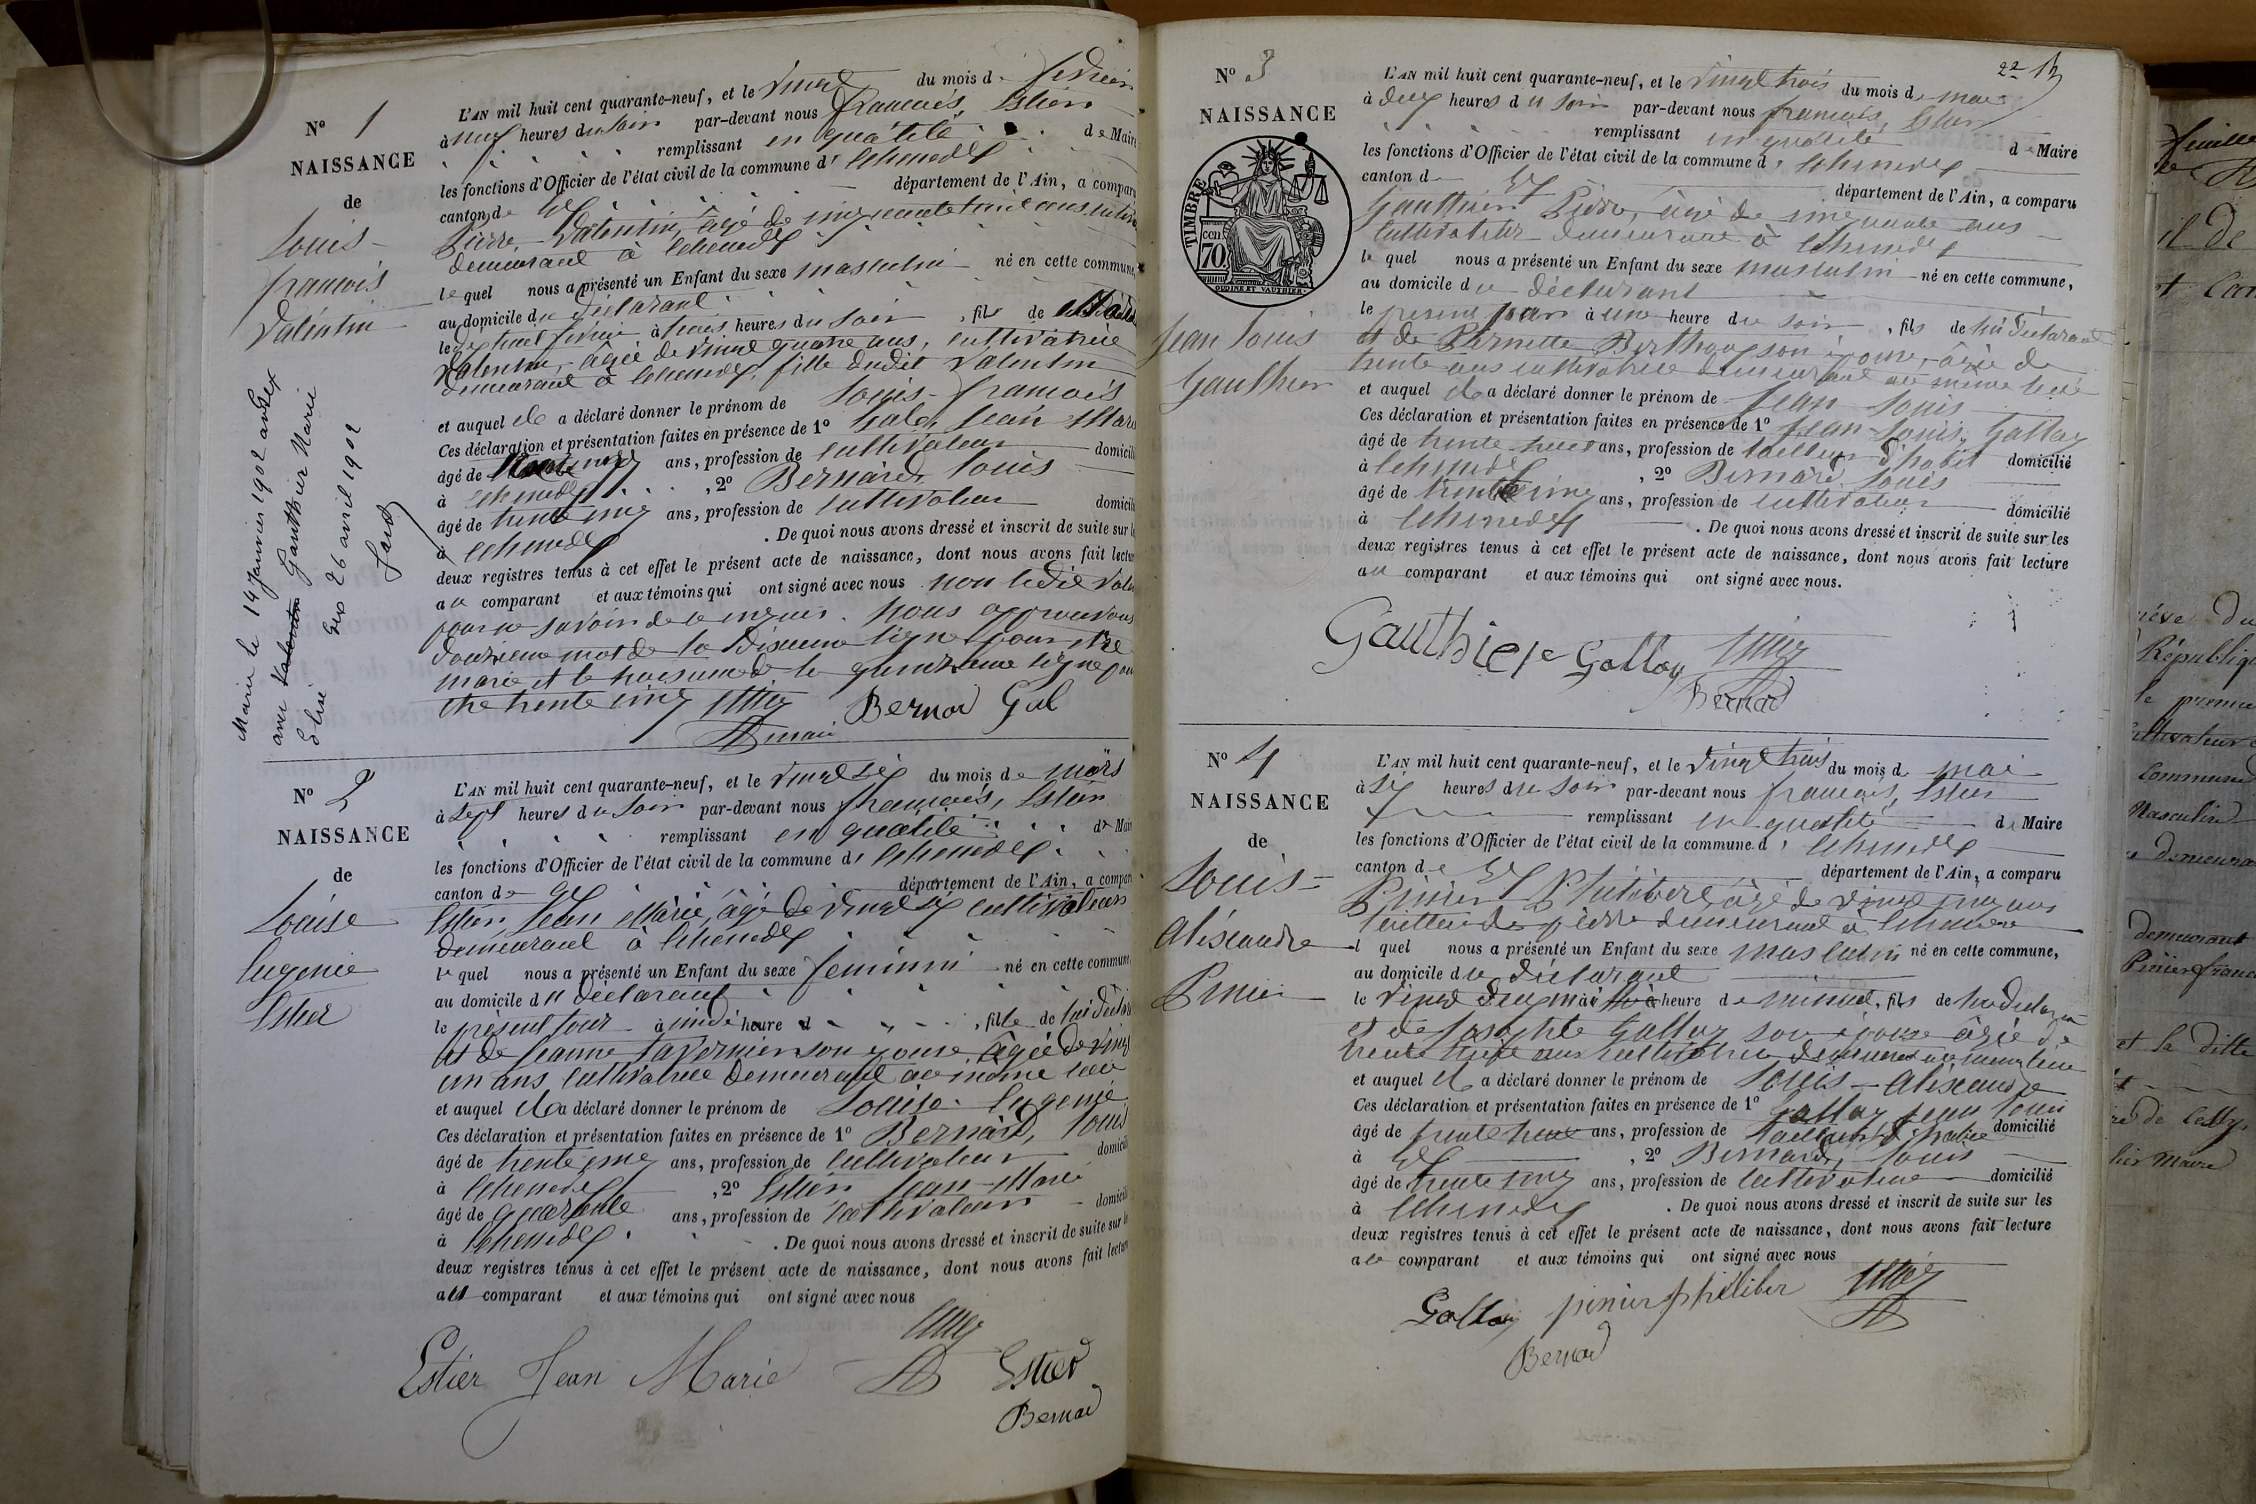 N° 1
NAISSANCE
de
Louis-
françois
Valentin
Marié le 14 Janvier 1902 à Gex
avec Valentin Gauthier Marie
Elisé
Gex 26 avril 1902
L'AN mil huit cent quarante-neuf, et le vingt du mois d. février
à neuf heures du soir par-devant nous françois, Estier
remplissant en qualité de Maire
les fonctions d'Officier de l'état civil de la commune d' Echenevex
canton de Gex département de l'Ain, a comparu
Pierre, Valentin, âgé de cinquante ans cultiv
demeurant à Echenevex
lequel nous a présenté un Enfant du sexe masculin né en cette commune
au domicile du déclarant
le dix huit février à trois heures du soir, fils de
Valentin, âgée de vingt quatre ans, cultivatrice
demeurant à Echenevex fille dudit Valentin
et auquel il a déclaré donner le prénom de Louis-françois
Ces déclaration et présentation faites en présence de 1° Gal, Jean Marie
âgé de ans, profession de cultivateur domicilié
à Echenevex, 2° Bernard, Louis
âgé de trente cinq ans, profession de cultivateur domicilié
à Echenevex. De quoi nous avons dressé et inscrit de suite sur les
deux registres tenus à cet effet le présent acte de naissance, dont nous avons fait lecture
au comparant et aux témoins qui ont signé avec nous non ledit Valen
pour ne savoir de ce enquis. nous approuvons
douzieme mot de la ligne pour être
marie et le de la quinzieme ligne pour
être trente cinq Estier Bernard Gal
maire
N° 2
NAISSANCE
de
Louise
Eugenie
Estier
L'AN mil huit cent quarante-neuf, et le vingt six du mois de mars
à sept heures du soir par-devant nous françois, Estier
remplissant en qualité de Maire
les fonctions d'Officier de l'état civil de la commune d' Echenevex
canton de Gex département de l'Ain, a comparu
Estier, Jean Marie, âgé de vingt six cultivateur
demeurant à Echenevex
lequel nous a présenté un Enfant du sexe feminin né en cette commune
au domicile du déclarant
le présent jour à midi heure d , fille de lui déclar
et de Jeanne Tavernier son epouse, âgée de vingt
un ans cultivatrice demeurant au même lieu
et auquel il a déclaré donner le prénom de Louise-Eugenie
Ces déclaration et présentation faites en présence de 1° Bernard, Louis
âgé de trente cinq ans, profession de cultivateur domicilié
à Echenevex, 2° Estier Jean-Marie
âgé de quarante ans, profession de cultivateur domicilié
à Echenevex. De quoi nous avons dressé et inscrit de suite sur les
deux registres tenus à cet effet le présent acte de naissance, dont nous avons fait lecture
au comparant et aux témoins qui ont signé avec nous
Estier
Estier Jean Marie Estier
Bernard
N° 3
NAISSANCE
TIMBRE
CEN
70
OUDINE ET VAUTHIER.
Jean Louis
Gauthier
L'AN mil huit cent quarante-neuf, et le vingt trois du mois de mars
à deux heures du soir par-devant nous françois, Estier
remplissant en qualité de Maire
les fonctions d'Officier de l'état civil de la commune d' Echenevex
canton d Gex département de l'Ain, a comparu
Gauthier Pierre, âgé de cinquante ans
cultivateur demeurant à Echenevex
lequel nous a présenté un Enfant du sexe masculin né en cette commune,
au domicile du déclarant
le present jour à une heure du soir, fils de lui déclarant
et de Pernette Berthoux son épouse, âgée de
trente ans cultivatrice demeurant au même lieu
et auquel il a déclaré donner le prénom de Jean Louis
Ces déclaration et présentation faites en présence de 1° Jean-Louis, Gallay
âgé de trente huit ans, profession de tailleur d'habit domicilié
à Echenevex, 2° Bernard, Louis
âgé de trente cinq ans, profession de cultivateur domicilié
à Echenevex. De quoi nous avons dressé et inscrit de suite sur les
deux registres tenus à cet effet le présent acte de naissance, dont nous avons fait lecture
au comparant et aux témoins qui ont signé avec nous.
Gauthier Gallay Estier
Bernard
N° 4
NAISSANCE
de
Louis-
Aléxandre
Pinier
L'AN mil huit cent quarante-neuf, et le vingt trois du mois de mai
à six heures du soir par-devant nous françois, Estier
remplissant en qualité de Maire
les fonctions d'Officier de l'état civil de la commune d' Echenevex
canton de Gex département de l'Ain, a comparu
Pinier Philibert, âgé de vingt cinq ans
tailleur de pierre demeurant à Echenevex
lequel nous a présenté un Enfant du sexe masculin né en cette commune,
au domicile du déclarant
le vingt deux mai à heure de minuit, fils de lui déclarant
et de Josephte Gallay son épouse âgée de
trente ans cultivatrice demeurant au même lieu
et auquel il a déclaré donner le prénom de Louis-Aléxandre
Ces déclaration et présentation faites en présence de 1° Gallay Jean Louis
âgé de trente huit ans, profession de Tailleur d'habit domicilié
à Gex, 2° Bernard, Louis
âgé de trente cinq ans, profession de cultivateur domicilié
à Echenevex. De quoi nous avons dressé et inscrit de suite sur les
deux registres tenus à cet effet le présent acte de naissance, dont nous avons fait lecture
au comparant et aux témoins qui ont signé avec nous
Gallay pinier philiber Estier
Bernard